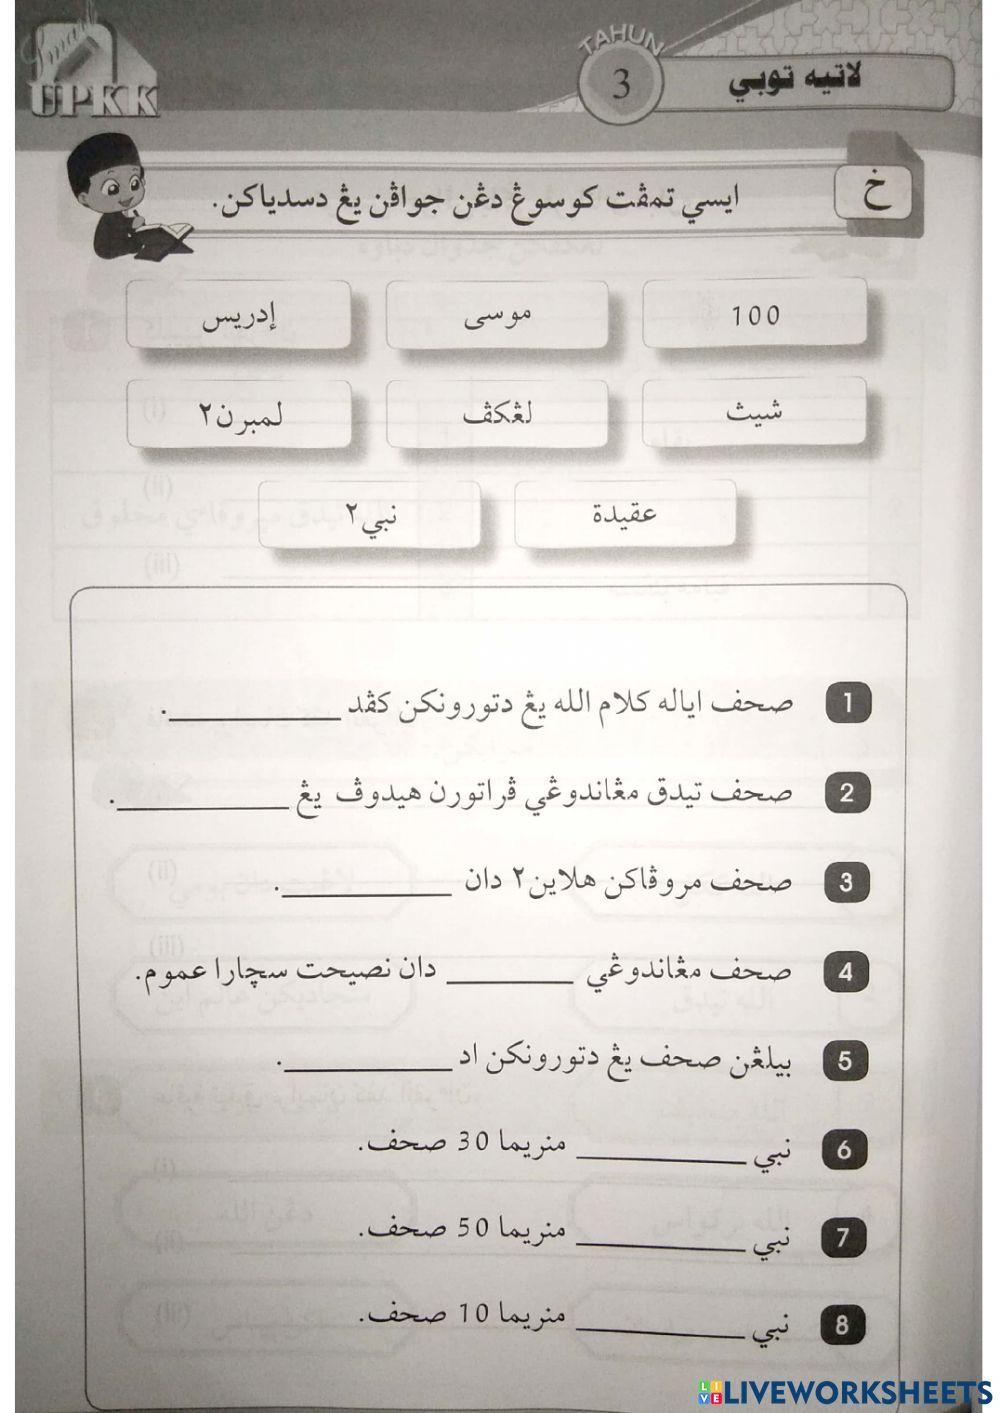 Smart
UPKK
TAHUN
3
لاتيه توبي
خ
ايسي تمڤت كوسوڠ دڠن جواڤن يڠ دسدياكن.
100
موسى
إدريس
شيث
لڠكڤ
لمبرن٢
عقيدة
نبي٢
1 صحف اياله كلام الله يڠ دتورونكن كڤد ____________.
2 صحف تيدق مڠاندوڠي ڤراتورن هيدوڤ يڠ ____________.
3 صحف مروڤاكن هلاين٢ دان ____________.
4 صحف مڠاندوڠي _________ دان نصيحت سچارا عموم.
5 بيلڠن صحف يڠ دتورونكن اد ____________.
6 نبي ____________ منريما 30 صحف.
7 نبي ____________ منريما 50 صحف.
8 نبي ____________ منريما 10 صحف.
LIVEWORKSHEETS